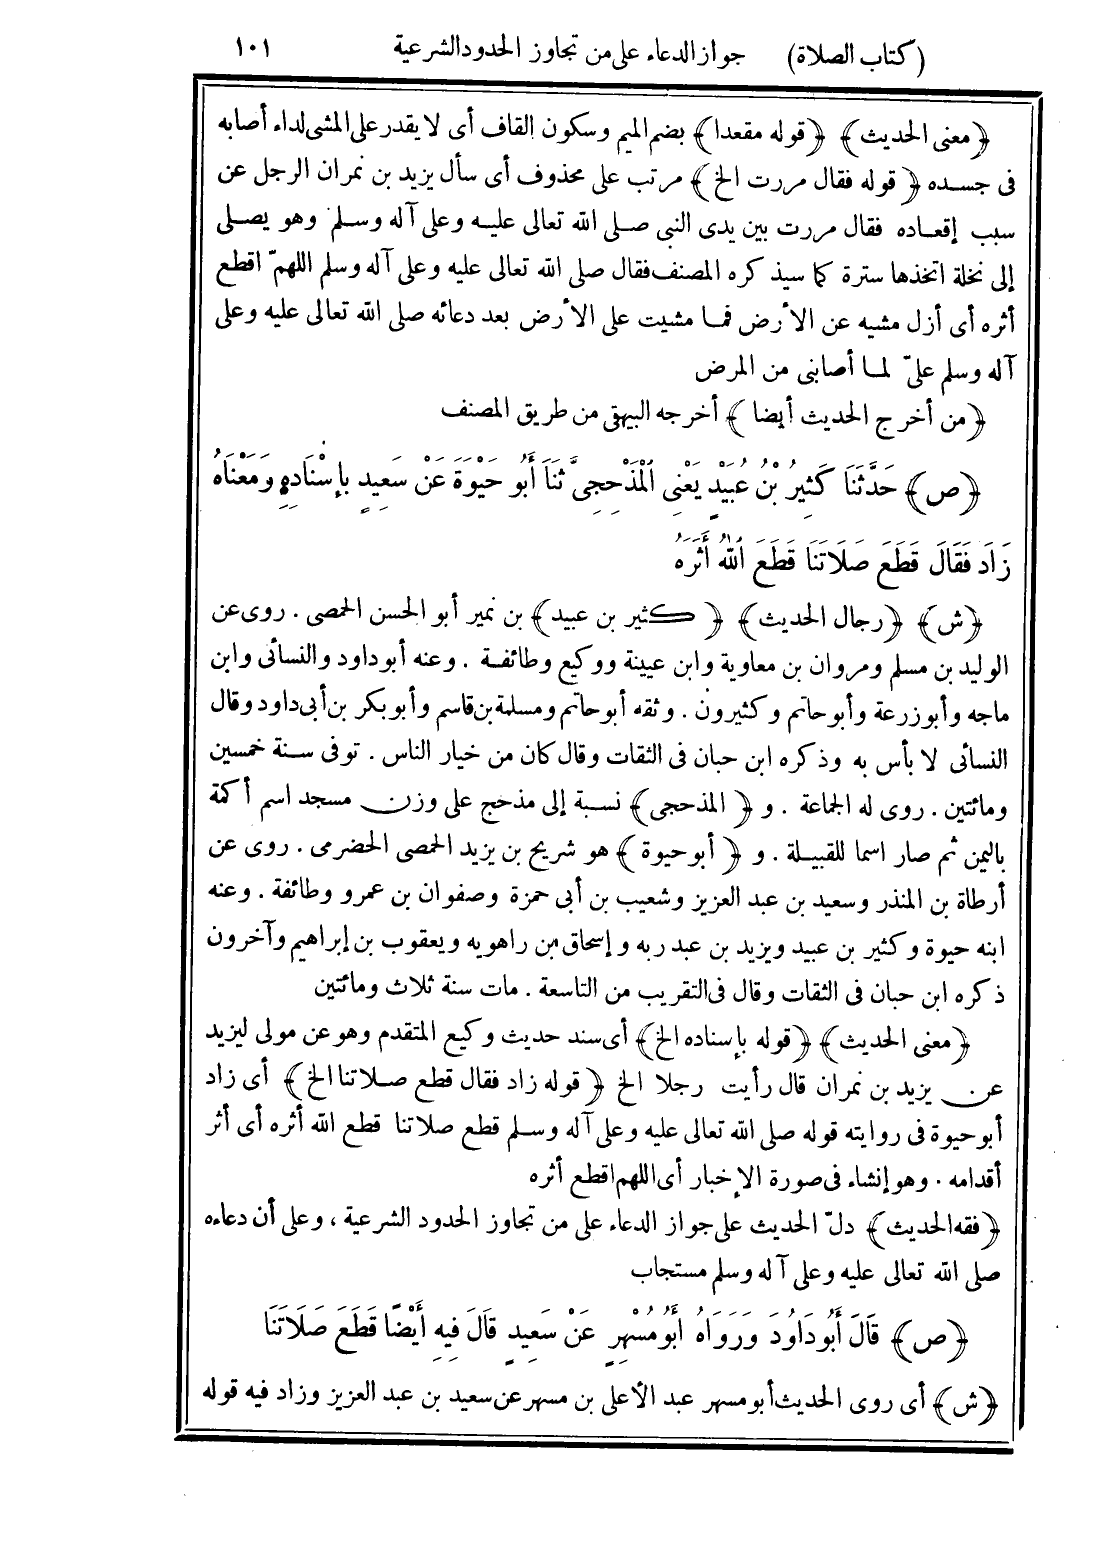 (كتاب الصلاة) جواز الدعاء على من تجاوز الحدود الشرعية ١٠١
﴿معنى الحديث﴾ ﴿قوله مقعدا﴾ بضم الميم وسكون القاف أى لا يقدر على المشى لداء أصابه
فى جسده ﴿قوله فقال مررت الخ﴾ مرتب على محذوف أى سأل يزيد بن نمران الرجل عن
سبب إقعاده فقال مررت بين يدى النبى صلى الله تعالى عليه وعلى آله وسلم وهو يصلى
إلى نخلة اتخذها سترة كما سيذكره المصنف فقال صلى الله تعالى عليه وعلى آله وسلم اللهمّ اقطع
أثره أى أزل مشيه عن الأرض فما مشيت على الأرض بعد دعائه صلى الله تعالى عليه وعلى
آله وسلم علىّ لما أصابنى من المرض
﴿من أخرج الحديث أيضا﴾ أخرجه البيهقى من طريق المصنف
﴿ص﴾ حَدَّثَنَا كَثِيرُ بْنُ عُبَيْدٍ يَعْنِى الْمَذْحِجِىَّ ثَنَا أَبُو حَيْوَةَ عَنْ سَعِيدٍ بِإِسْنَادِهِ وَمَعْنَاهُ
زَادَ فَقَالَ قَطَعَ صَلَاتَنَا قَطَعَ اللهُ أَثَرَهُ
﴿ش﴾ ﴿رجال الحديث﴾ ﴿كثير بن عبيد﴾ بن نمير أبو الحسن الحمصى . روى عن
الوليد بن مسلم ومروان بن معاوية وابن عيينة ووكيع وطائفة . وعنه أبو داود والنسائى وابن
ماجه وأبو زرعة وأبو حاتم وكثيرون . وثقه أبو حاتم ومسلمة بن قاسم وأبو بكر بن أبى داود وقال
النسائى لا بأس به وذكره ابن حبان فى الثقات وقال كان من خيار الناس . توفى سنة خمسين
ومائتين . روى له الجماعة . و ﴿المذحجى﴾ نسبة إلى مذحج على وزن مسجد اسم أكمة
باليمن ثم صار اسما للقبيلة . و ﴿أبو حيوة﴾ هو شريح بن يزيد الحمصى الحضرمى . روى عن
أرطاة بن المنذر وسعيد بن عبد العزيز وشعيب بن أبى حمزة وصفوان بن عمرو وطائفة . وعنه
ابنه حيوة وكثير بن عبيد ويزيد بن عبد ربه وإسحاق بن راهويه ويعقوب بن إبراهيم وآخرون
ذكره ابن حبان فى الثقات وقال فى التقريب من التاسعة . مات سنة ثلاث ومائتين
﴿معنى الحديث﴾ ﴿قوله بإسناده الخ﴾ أى سند حديث وكيع المتقدم وهو عن مولى ليزيد
عن يزيد بن نمران قال رأيت رجلا الخ ﴿قوله زاد فقال قطع صلاتنا الخ﴾ أى زاد
أبو حيوة فى روايته قوله صلى الله تعالى عليه وعلى آله وسلم قطع صلاتنا قطع الله أثره أى أثر
أقدامه . وهو إنشاء فى صورة الإخبار أى اللهم اقطع أثره
﴿فقه الحديث﴾ دلّ الحديث على جواز الدعاء على من تجاوز الحدود الشرعية ، وعلى أن دعاءه
صلى الله تعالى عليه وعلى آله وسلم مستجاب
﴿ص﴾ قَالَ أَبُو دَاوُدَ وَرَوَاهُ أَبُو مُسْهِرٍ عَنْ سَعِيدٍ قَالَ فِيهِ أَيْضًا قَطَعَ صَلَاتَنَا
﴿ش﴾ أى روى الحديث أبو مسهر عبد الأعلى بن مسهر عن سعيد بن عبد العزيز وزاد فيه قوله